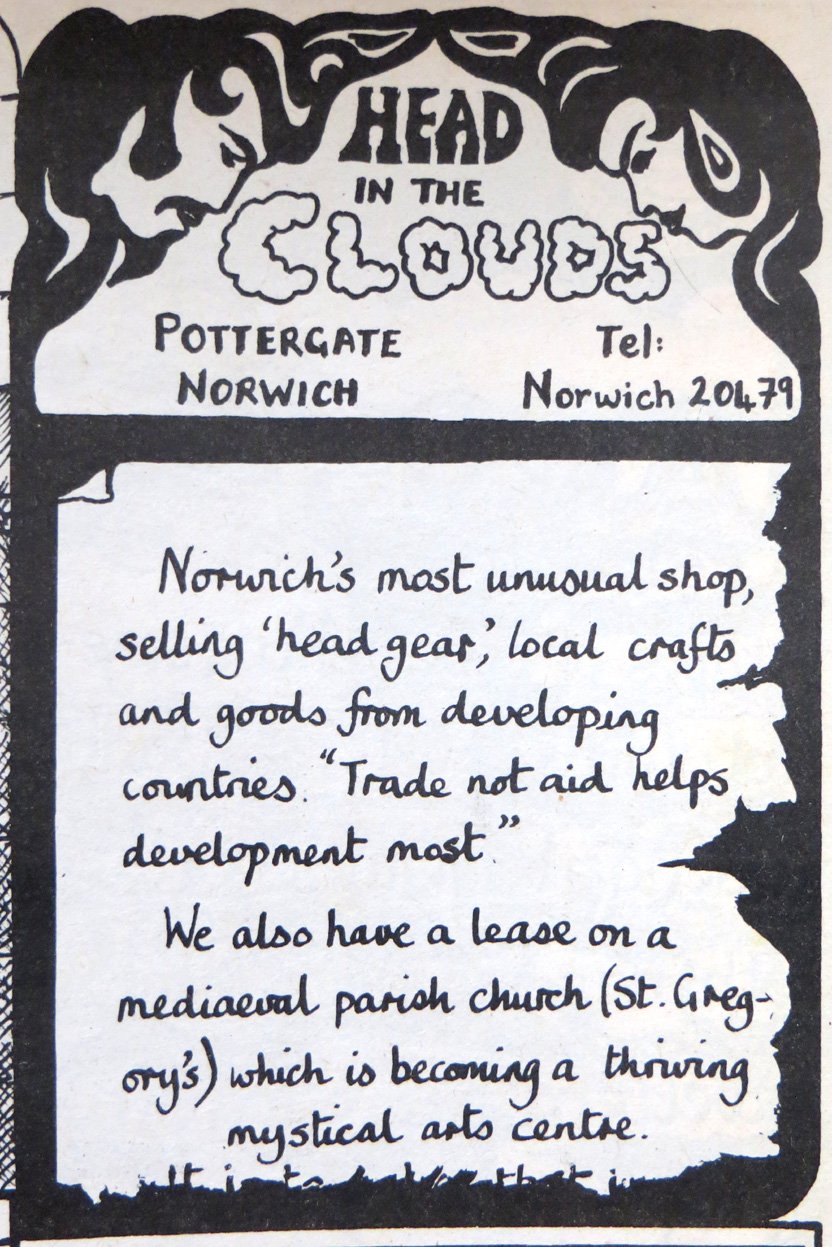 HEAD
IN THE
CLOUDS
POTTERGATE
NORWICH
Tel:
Norwich 20479
Norwich's most unusual shop,
selling 'head gear,' local crafts
and goods from developing
countries. "Trade not aid helps
development most."
We also have a lease on a
mediaeval parish church (St. Greg-
ory's) which is becoming a thriving
mystical arts centre.